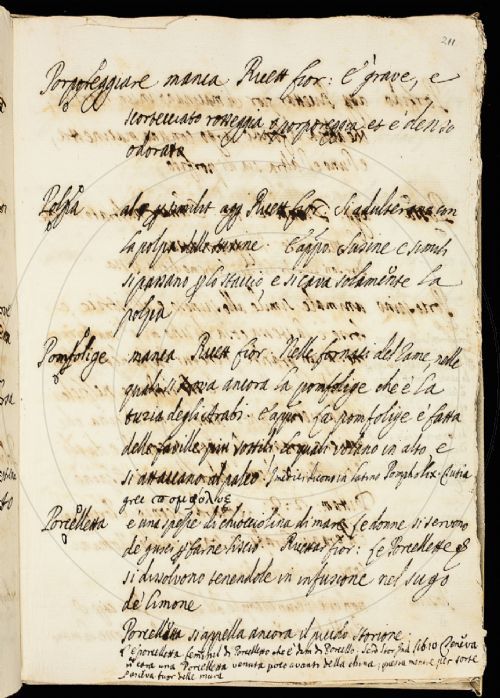 211
Porporeggiare manca Ricett fior: è grave, e
scortecciato rosseggia o porporeggia et è denso
odorato
Polpa al § simili agg Ricett fior. Si adulterano con
la polpa delle susine. E appio. Susine e simili
si passano p lo staccio, e si cava solamente la
polpa
Pomfolige manca Ricett fior. Nelle fornaci del rame, nelle
quali si trova ancora la pomfolige che è la
tuzia degli Arabi. E appr. La pomfolige è fatta
delle faville più sottili le quali volano in alto, e
si attaccano al palco. I medici dicono in latino Pompholix. Tutia
grec πομφόλυξ
Porcelletta è una spezie di chiocciolina di mare le donne si servono
de gusci p farne liscio Ricettar fior: Le Porcellette
si dissolvono tenendole in infusione nel sugo
de limone
Porcelletta si appella ancora il piccolo storione
È porcelletta femminil di Porcelletto che è dim. di Porcello. libro
era una Porcelletta venuta poco avanti della china, questa per sorte
fuor delle mura